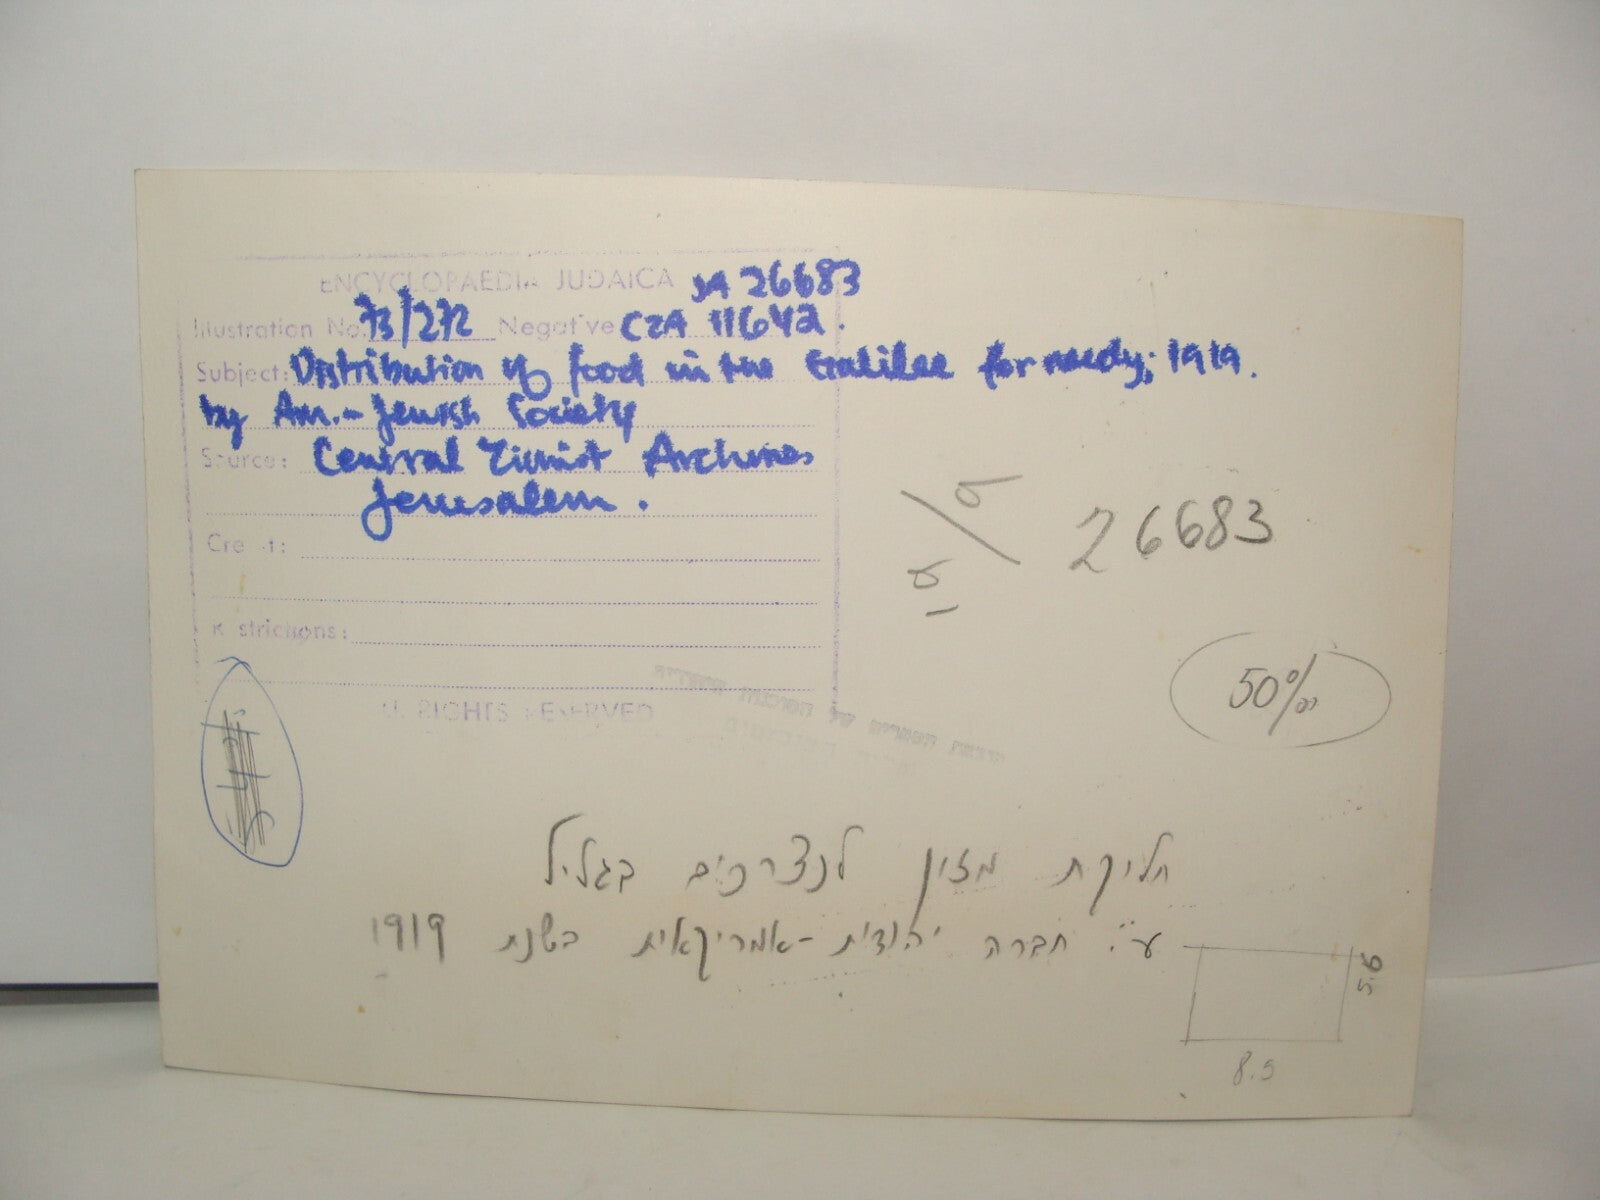 ENCYCLOPAEDIA JUDAICA JA 26683
Illustration No. 73/272 Negative CZA 11642.
Subject: Distribution of food in the Galilee for needy; 1919.
by Am.- Jewish Society
Source: Central Zionist Archives
Jerusalem.
Credit:
Restrictions:
ALL RIGHTS RESERVED
26683
50%
חליקת מזון לנצרכים בגליל
ע"י חברה יהודית-אמריקאית בשנת 1919
5.6
8.5